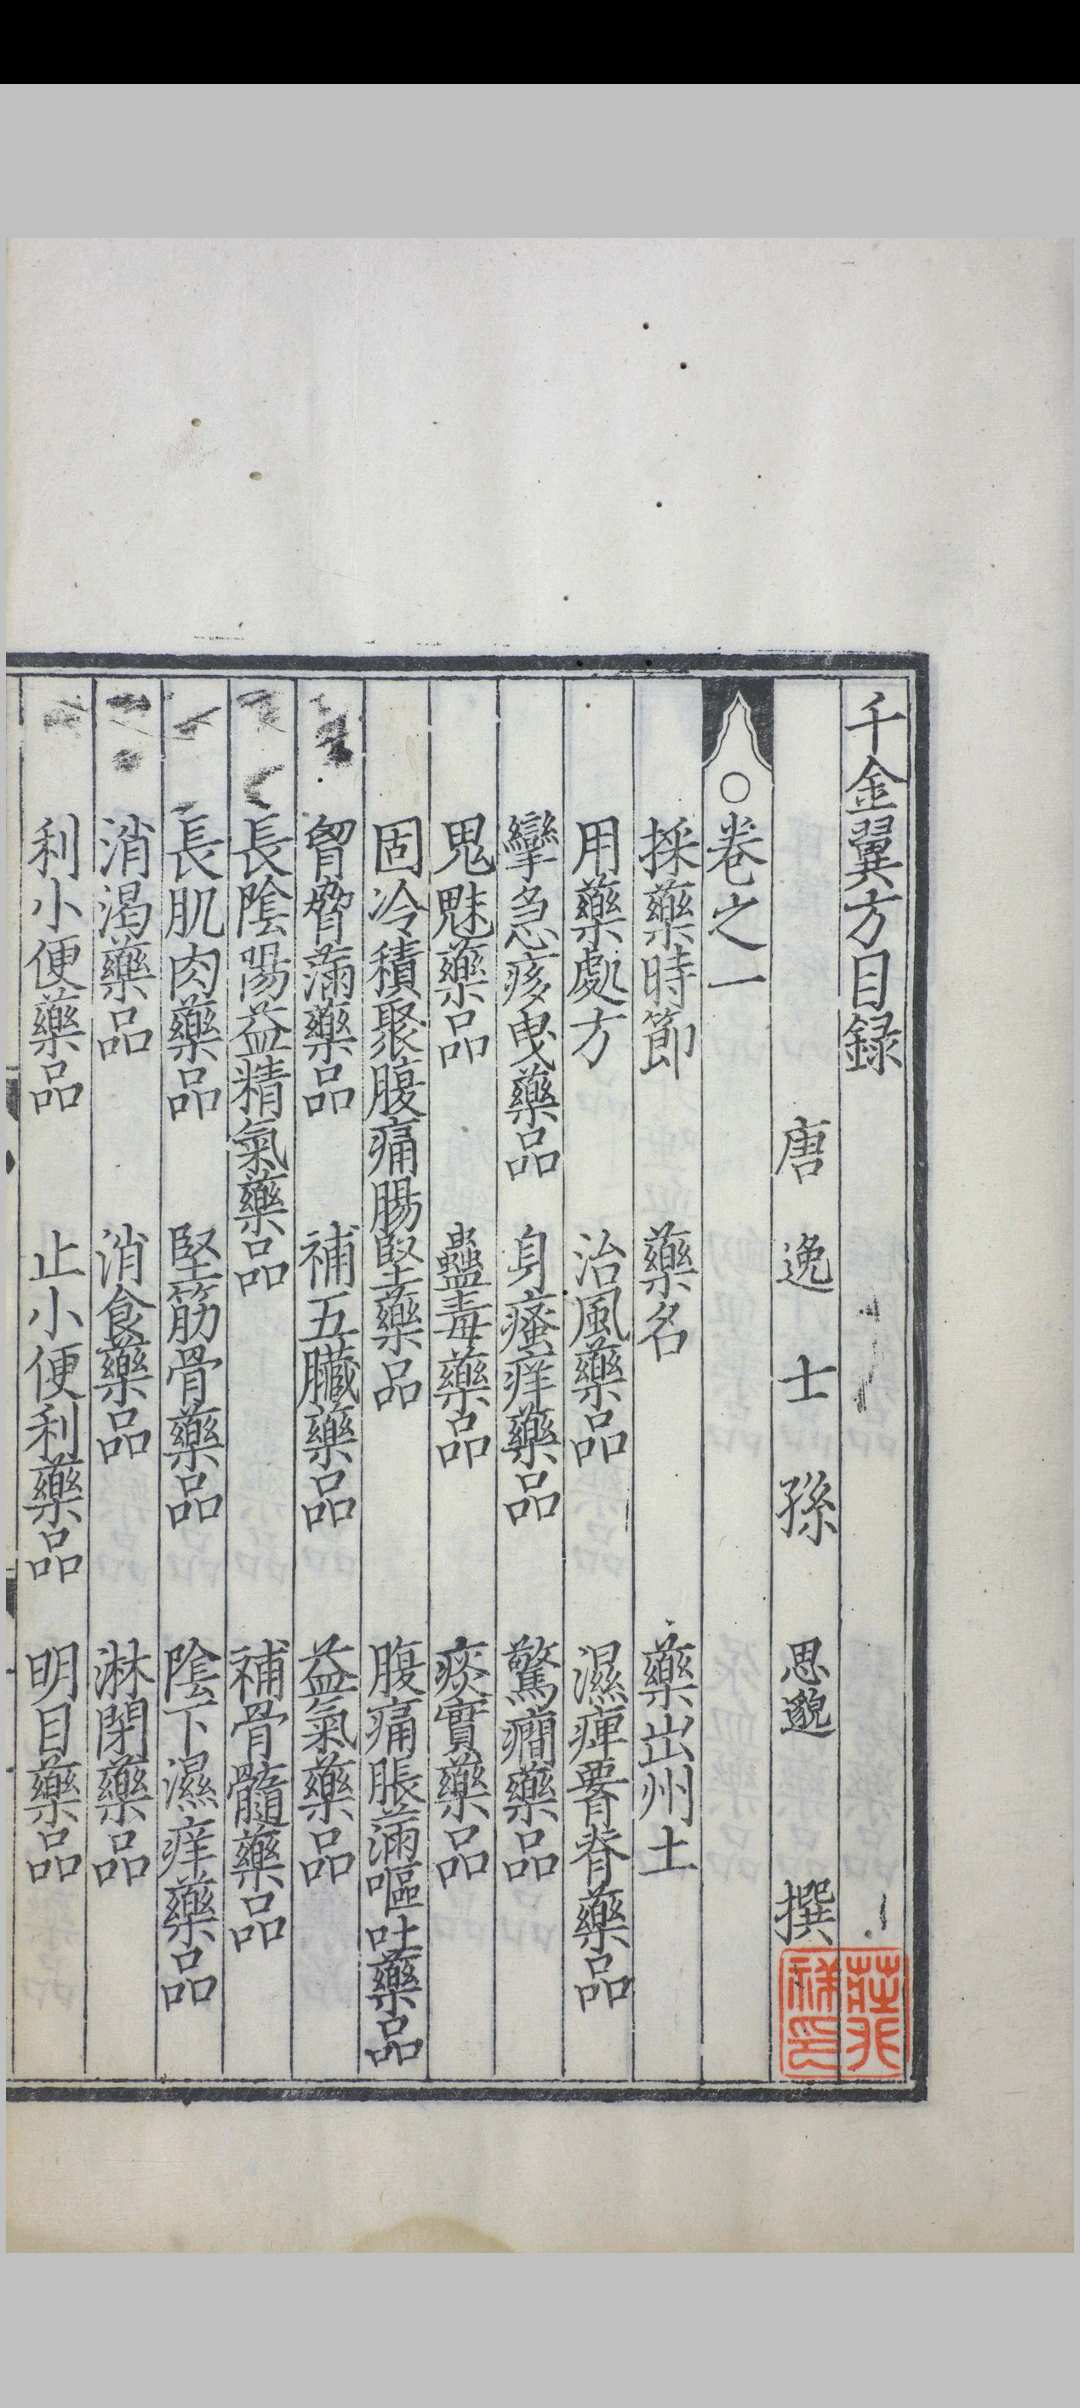 千金翼方目録
唐逸士孫思邈撰
卷之一
採藥時節 藥名 藥出州土
用藥處方 治風藥品 濕痺腰脊藥品
攣急㾁曳藥品 身瘙痒藥品 驚癇藥品
鬼魅藥品 蠱毒藥品 痰實藥品
固冷積聚腹痛腸堅藥品 腹痛脹滿嘔吐藥品
胷脅滿藥品 補五臓藥品 益氣藥品
長陰陽益精氣藥品 補骨髓藥品
長肌肉藥品 堅筋骨藥品 陰下濕痒藥品
消渴藥品 消食藥品 淋閉藥品
利小便藥品 止小便利藥品 明目藥品